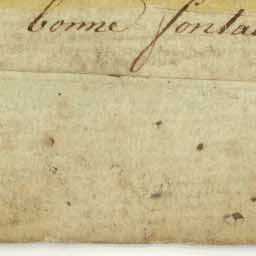 bonne fonta